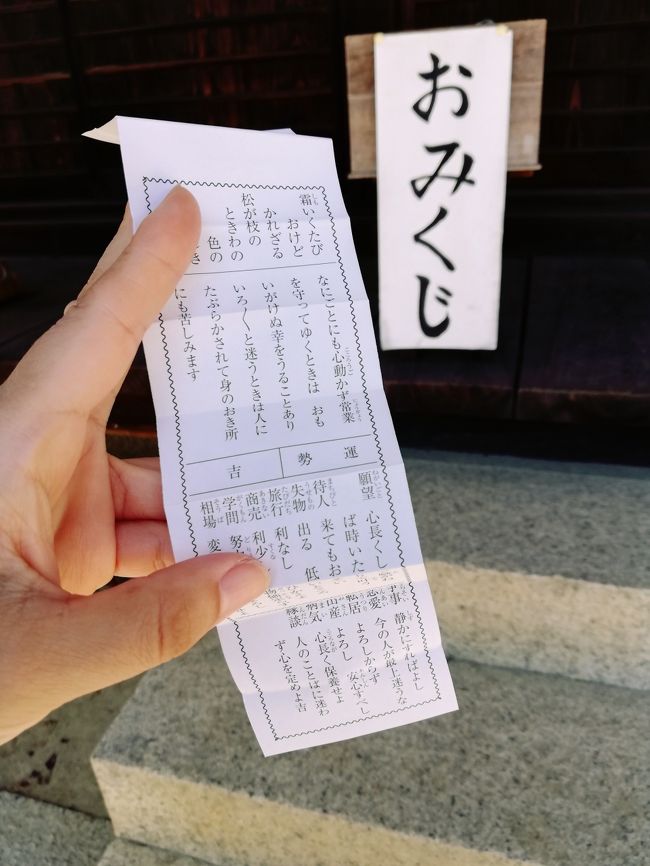 おみくじ
霜いくたび
おけど
かれざる
松が枝の
ときわの
色の
なにごとにも心動かず常業
を守ってゆくときは おも
いがけぬ幸をうることあり
いろ〱と迷うときは人に
たぶらかされて身のおき所
にも苦しみます
運勢 吉
願望 心長くし
ば時いた
待人 来てもお
失物 出る 低
旅行 利なし
商売 利少
学問
相場 変
争事 静かにすればよし
恋愛 今の人が最上迷うな
転居 よろしからず
出産 よろし 安心すべし
病気 心長く保養せよ
縁談 人のことばに迷わ
ず心を定めよ吉